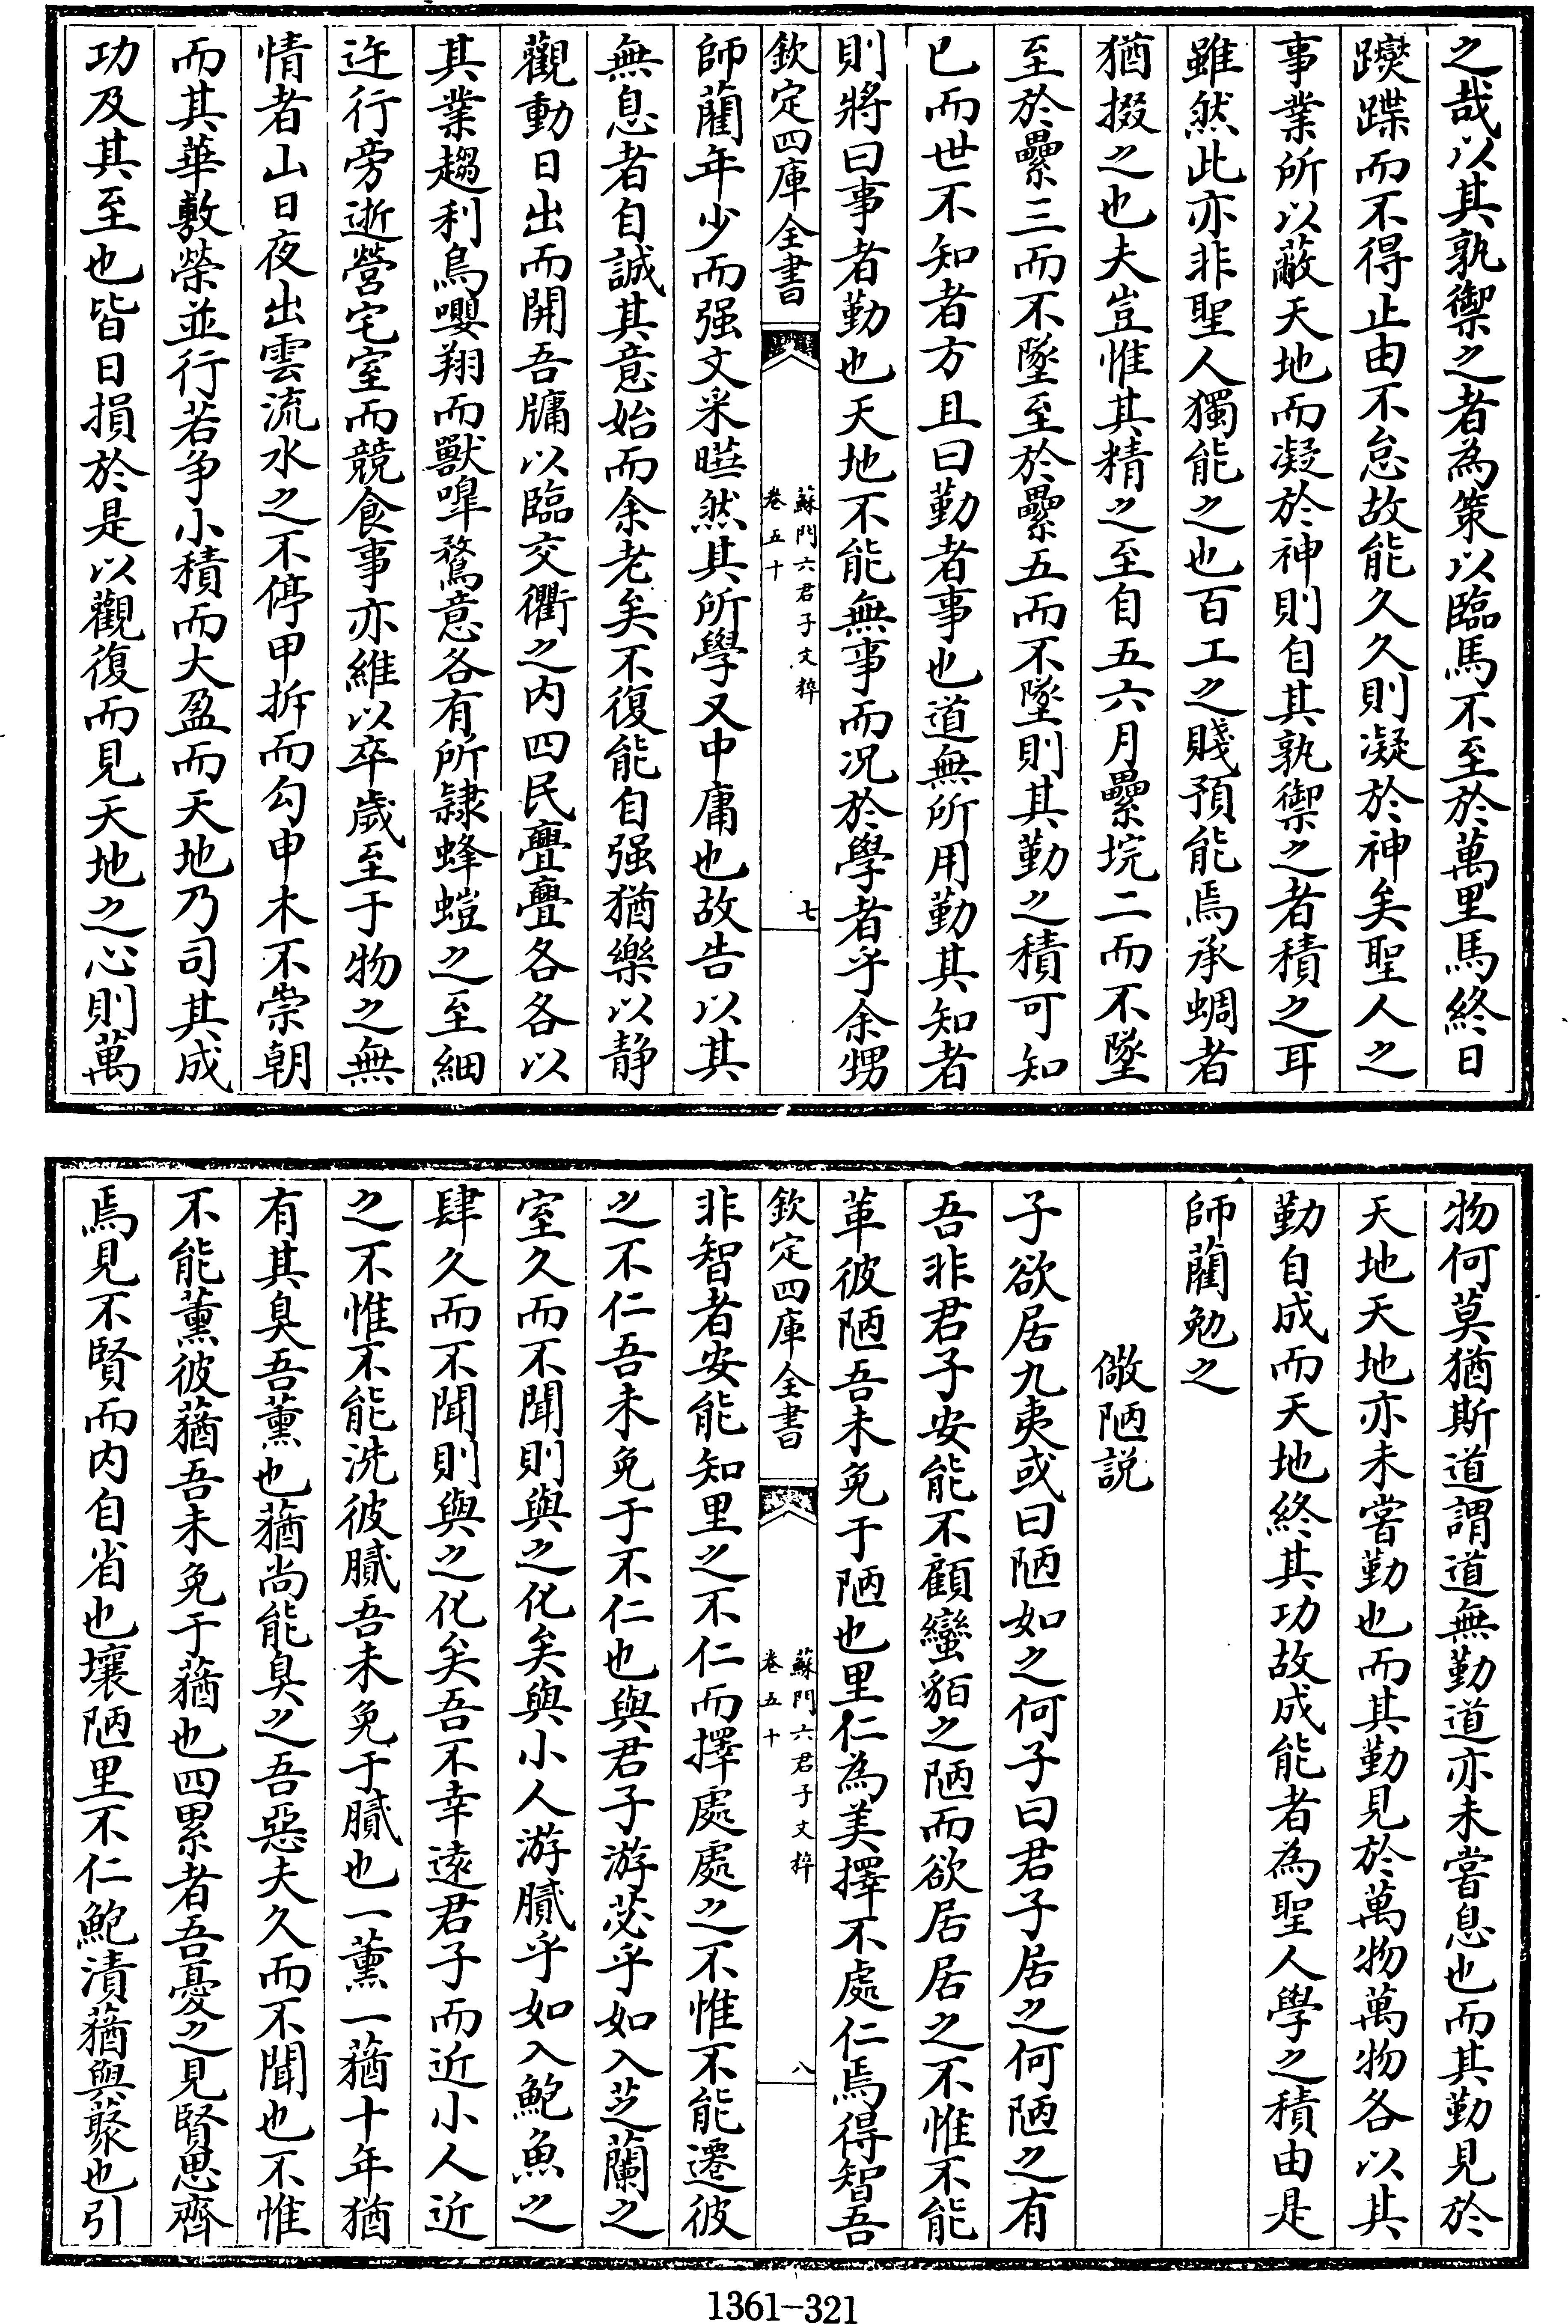 之哉以其孰禦之者為策以臨馬不至於萬里馬終日
躞蹀而不得止由不怠故能久久則凝於神矣聖人之
事業所以蔽天地而凝於神則自其孰禦之者積之耳
雖然此亦非聖人獨能之也百工之賤預能焉承蜩者
猶掇之也夫豈惟其精之至自五六月纍垸二而不墜
至於纍三而不墜至於纍五而不墜則其勤之積可知
已而世不知者方且曰勤者事也道無所用勤其知者
則將曰事者勤也天地不能無事而况於學者乎余甥
欽定四庫全書
蘇門六君子文粹
卷五十
七
師藺年少而强文采曄然其所學又中庸也故告以其
無息者自誠其意始而余老矣不復能自强猶樂以静
觀動日出而開吾牖以臨交衢之内四民亹亹各各以
其業趨利鳥嚶翔而獸嘷騖意各有所隷蜂螘之至細
迕行旁逝營宅室而競食事亦維以卒歲至于物之無
情者山日夜出雲流水之不停甲拆而勾申木不崇朝
而其華敷榮並行若争小積而大盈而天地乃司其成
功及其至也皆日損於是以觀復而見天地之心則萬
物何莫猶斯道謂道無勤道亦未嘗息也而其勤見於
天地天地亦未嘗勤也而其勤見於萬物萬物各以其
勤自成而天地終其功故成能者為聖人學之積由是
師藺勉之
儆陋説
子欲居九夷或曰陋如之何子曰君子居之何陋之有
吾非君子安能不顧蠻貊之陋而欲居居之不惟不能
革彼陋吾未免于陋也里仁為美擇不處仁焉得智吾
欽定四庫全書
蘇門六君子文粹
卷五十
八
非智者安能知里之不仁而擇處處之不惟不能遷彼
之不仁吾未免于不仁也與君子游苾乎如入芝蘭之
室久而不聞則與之化矣與小人游膩乎如入鮑魚之
肆久而不聞則與之化矣吾不幸遠君子而近小人近
之不惟不能洗彼膩吾未免于膩也一薰一蕕十年猶
有其臭吾薰也蕕尚能臭之吾惡夫久而不聞也不惟
不能薰彼蕕吾未免于蕕也四累者吾憂之見賢思齊
焉見不賢而内自省也壤陋里不仁鮑漬蕕與蘩也引
1361-321